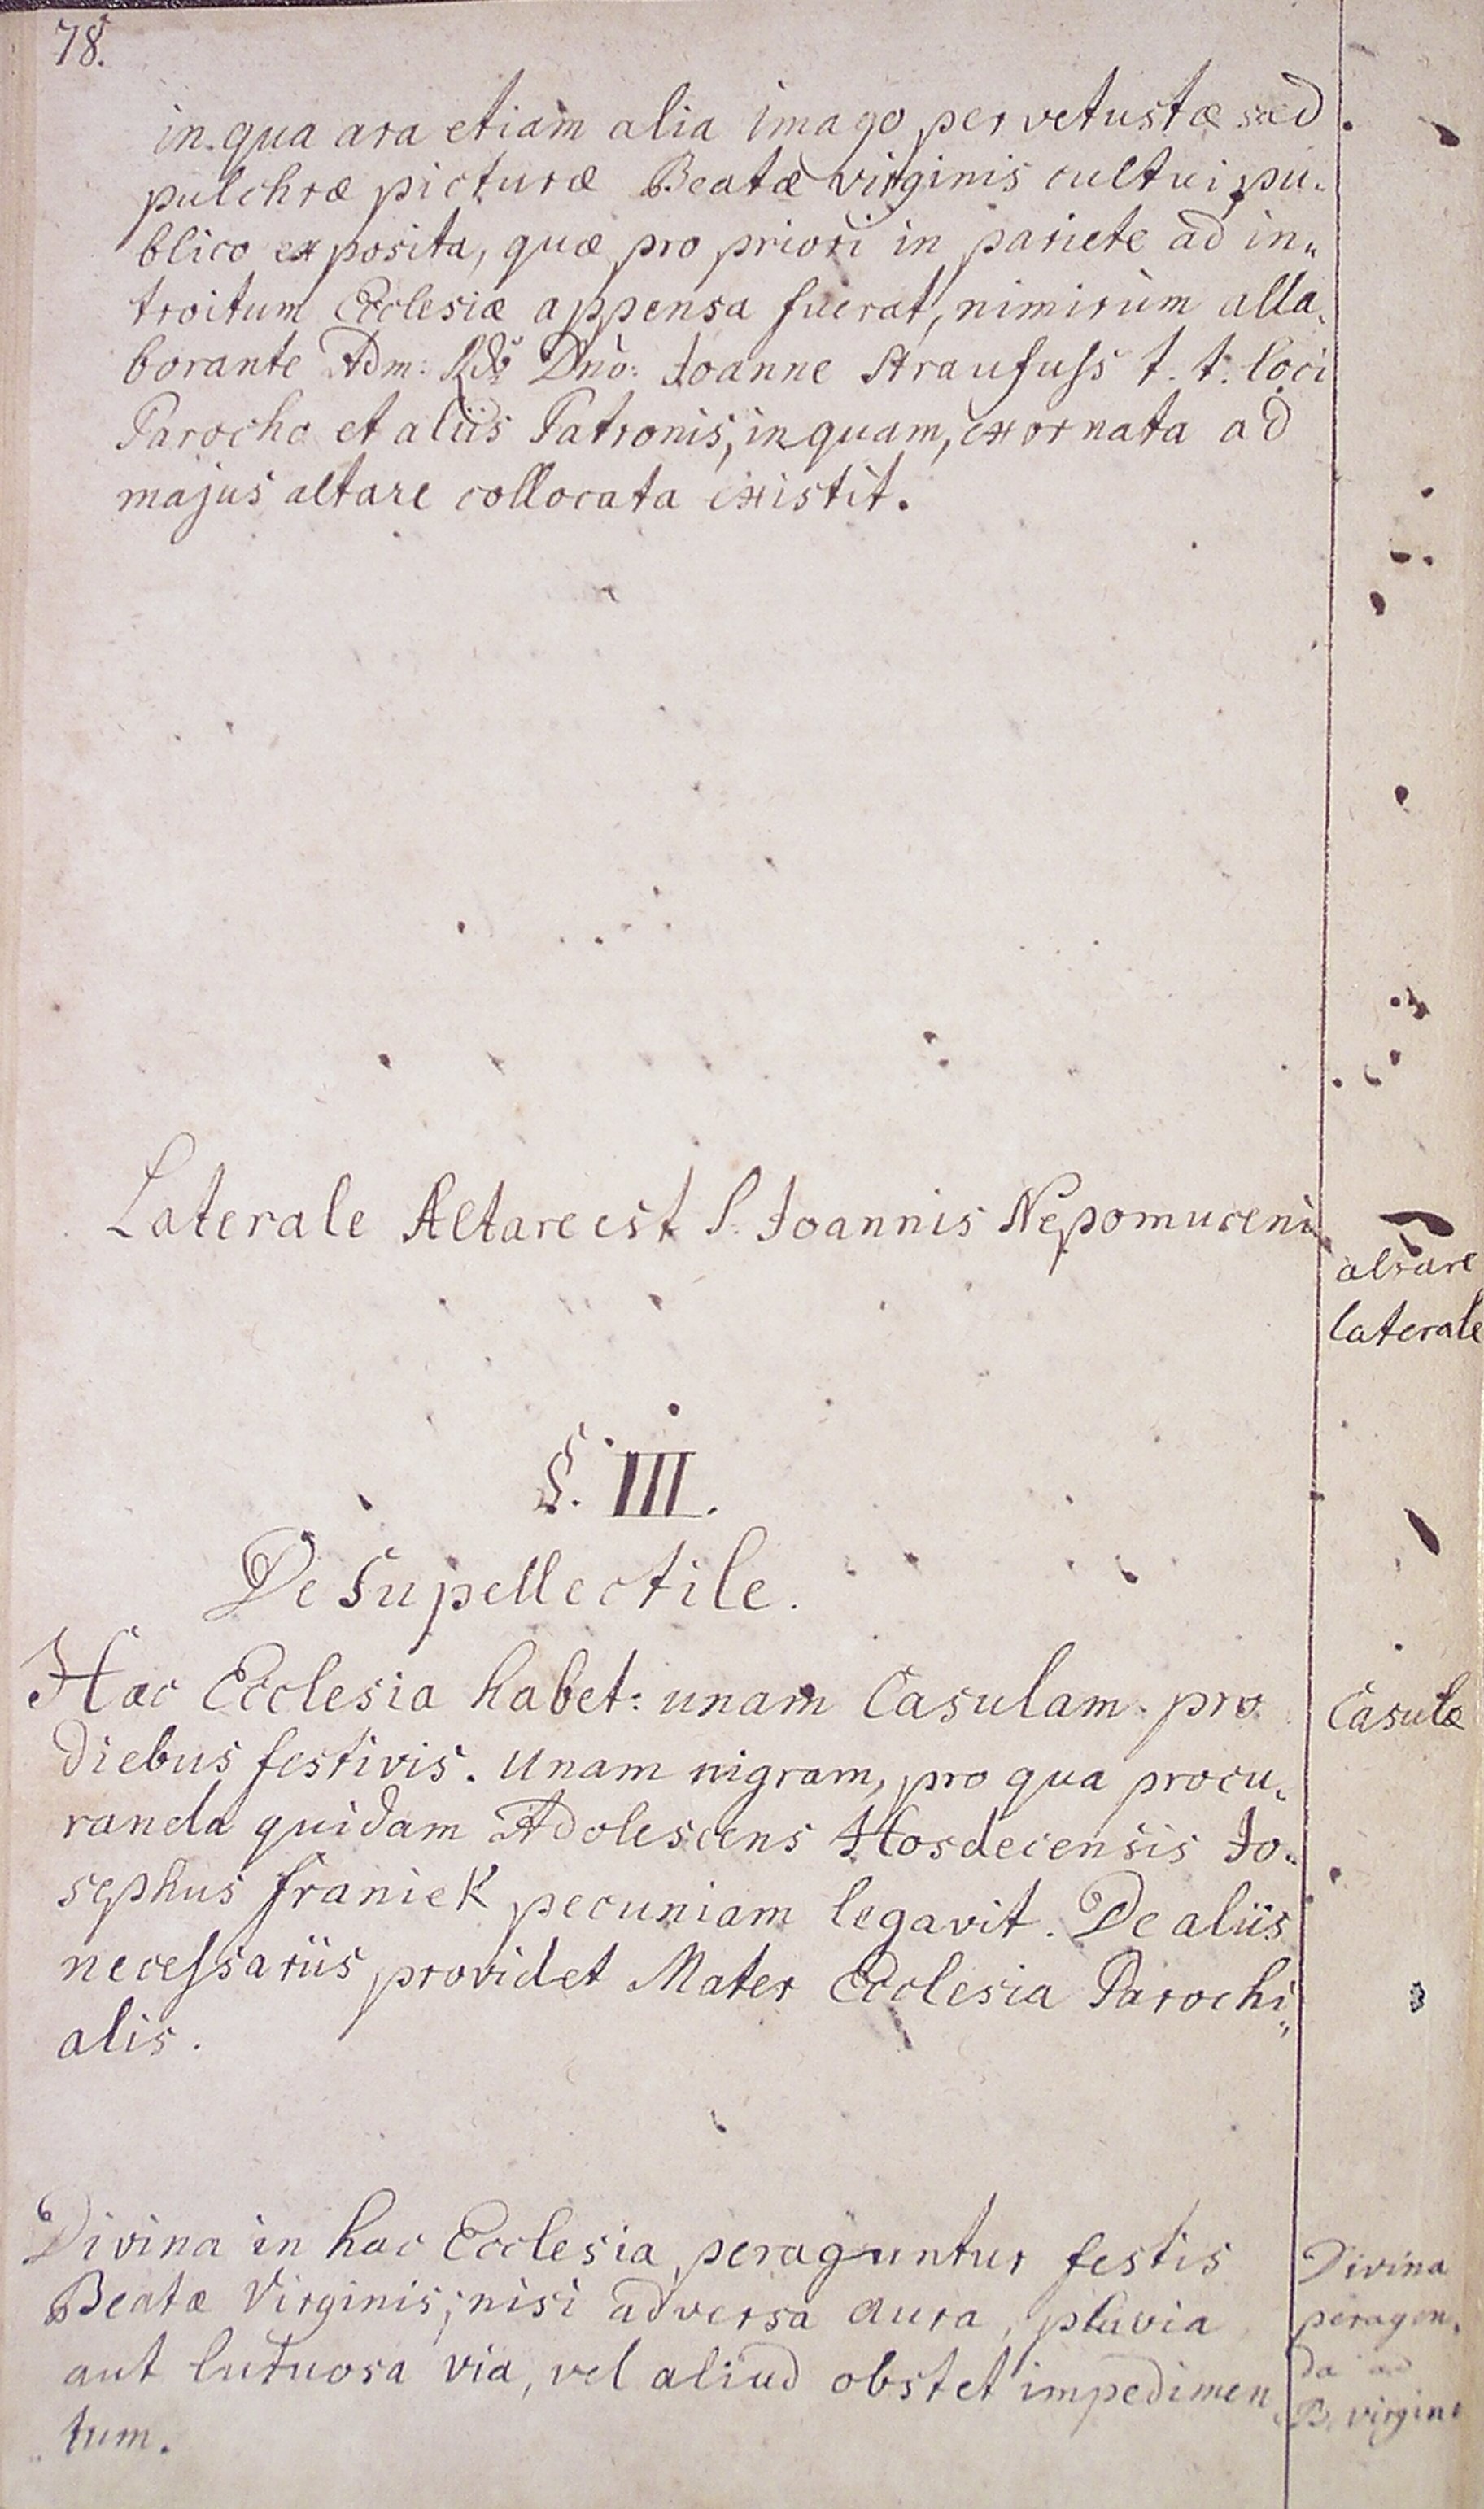 78.
in qua ara etiam alia imago pervetustæ sed
pulchræ picturæ Beatæ Virginis cultui pu-
blico exposita, quæ pro priori in pariete ad in„
troitum Ecclesiæ appensa fuerat, nimirùm alla„
borante Adm: Rdo Dno: Joanne Straufuss t. t. loci
Parocho et aliis Patronis, inquam, exornata ad
majus altare collocata existit.
Laterale Altare est S. Joannis Nepomuceni
altare
laterale
§. III.
De Supellectile.
Hæc Ecclesia habet: unam Casulam pro
Casulæ
diebus festivis. Unam nigram, pro qua procu„
randa quidam Adolescens Hosdecensis Jo„
sephus Franiek pecuniam legavit. De aliis
necessariis providet Mater Ecclesia Parochi„
alis.
Divina in hac Ecclesia peraguntur festis
Beatæ Virginis, nisi adversa aura, pluvia
aut lutuosa via, vel aliud obstet impedimen
tum.
Divina
peragen„
da ad
B. Virgine